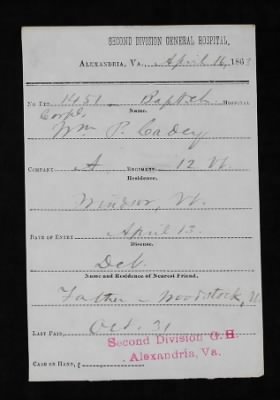 SECOND DIVISION GENERAL HOSPITAL,
ALEXANDRIA, VA. April 16, 1863
No 1451 - Baptist HOSPITAL
Name.
Corpl.
Wm P. Cadey
COMPANY A REGIMENT 12 Vt.
Residence.
Windsor, Vt.
DATE OF ENTRY April 13.
Disease.
Deb.
Name and Residence of Nearest Friend.
Father - Woodstock, Vt
LAST PAID, Oct. 31
Second Division G. H.
Alexandria, Va.
CASH ON HAND, $